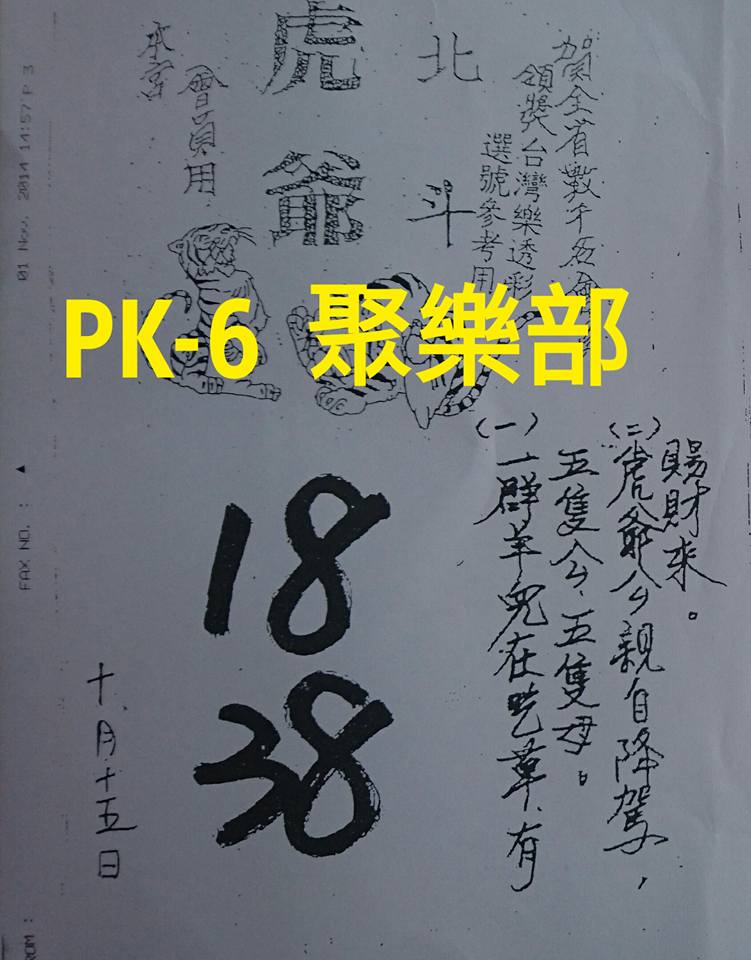 賀全省數千名
領獎台灣樂透彩
選號參考用
北斗
虎爺
會員用
本宮
PK-6 聚樂部
(一)一群羊兒在吃草、有
五隻公、五隻母。
(二)虎爺公親自降駕,
賜財來。
18
38
十、月十五日
01 Nov. 2014 14:57 P 3
FAX NO. :
ROM :